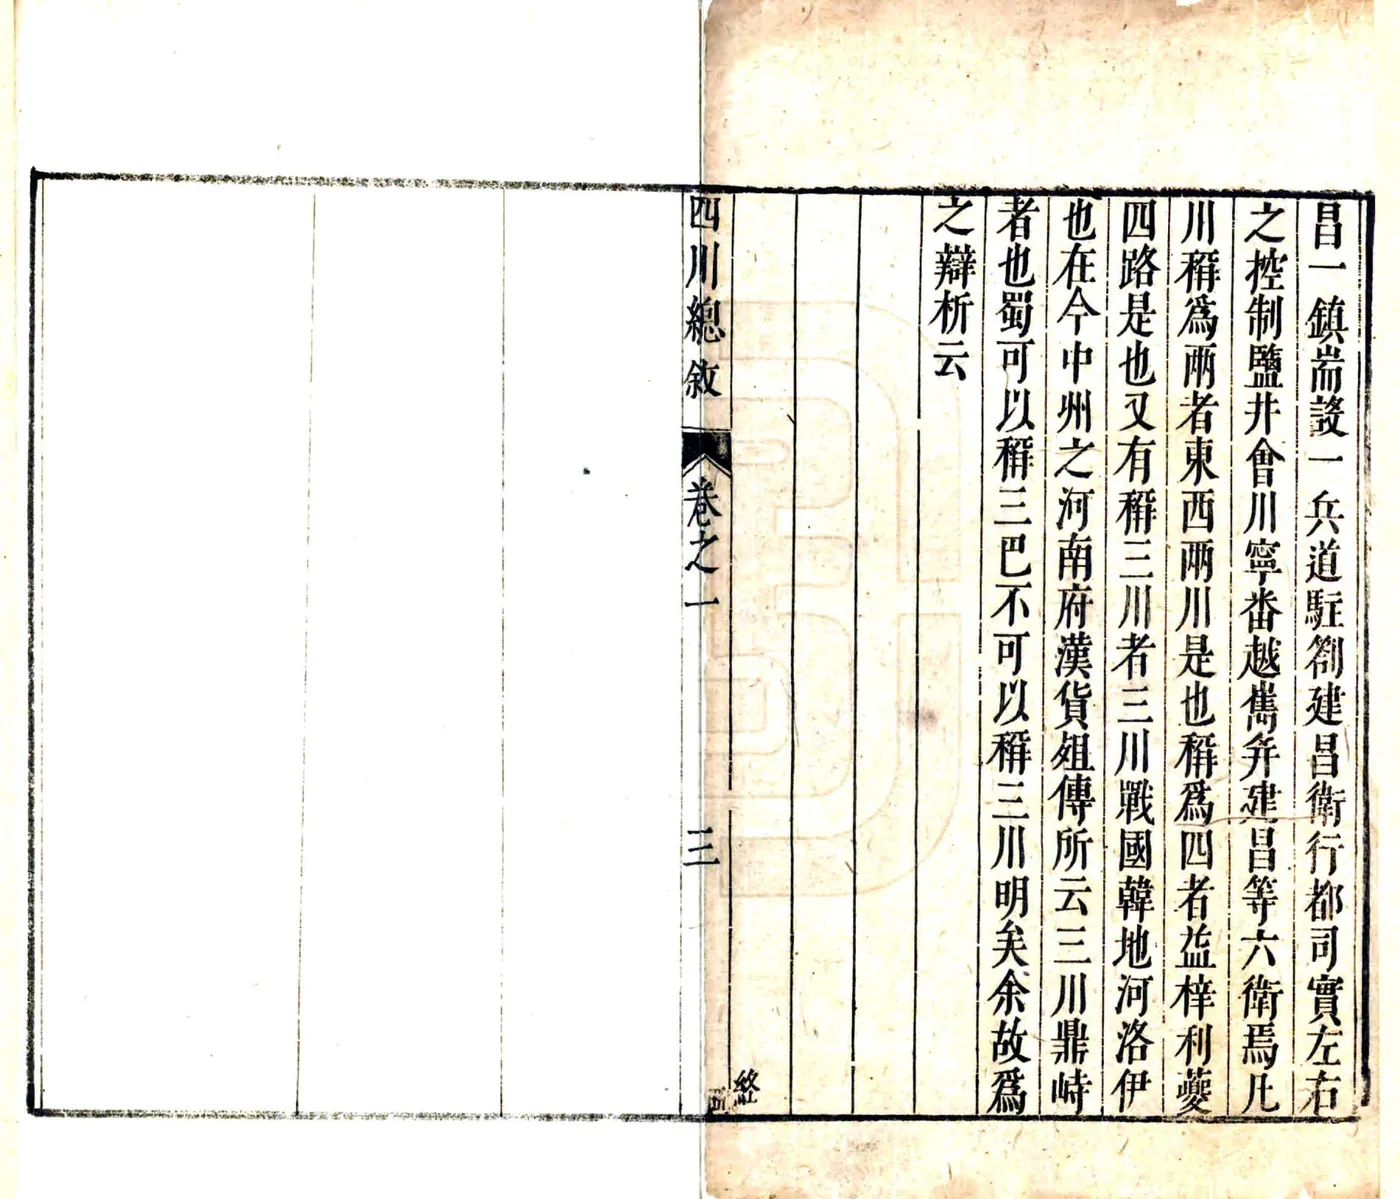 昌一鎮耑設一兵道駐劄建昌衛行都司實左右
之控制鹽井會川寧番越雟并建昌等六衛焉凡
川稱為兩者東西兩川是也稱為四者益梓利夔
四路是也又有稱三川者三川戰國韓地河洛伊
也在今中州之河南府漢貨殂傳所云三川鼎峙
者也蜀可以稱三巴不可以稱三川明矣余故為
之辯析云
終
四川總敘 卷之一 三